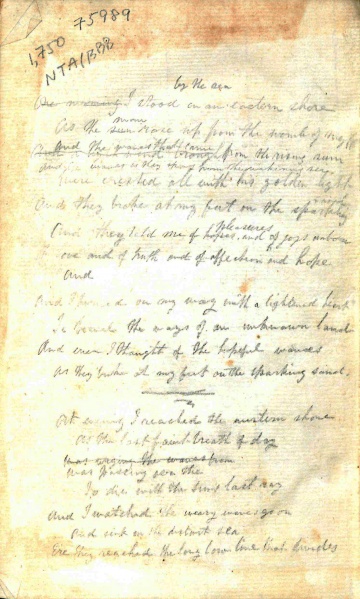 75989
1,750
NTA/BBB
by the sea
One morning I stood on an eastern shore
As the sun rose up from the womb of night
morn
And the waves that came
from the rising sun
were crested all with his golden light
And they broke at my feet on the sparkling
And they told me of hopes, and of joys
pleasures
and of truth and of affection and hope
and
And I on my way with a lightened heart
To the ways of an unknown land
And ever I thought of the hopeful waves
As they broke at my feet on the sparkling sand.
At evening I reached the western shore
As the last faint breath of day
was passing o'er the
To die with the sun's last ray
And I watched the weary waves go on
And sink in the distant sea
Ere they reached the long low line that divides